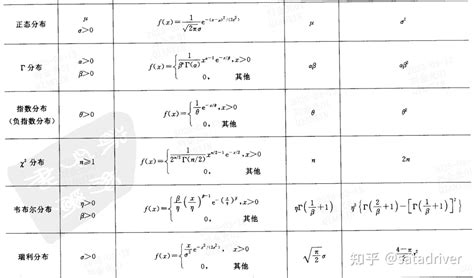 正态分布 μ σ>0 f(x)=1/(√2πσ) e^{-(x-μ)²/(2σ²)} μ σ²
Γ 分布 α>0 β>0 f(x)={1/(β^αΓ(α)) x^{α-1}e^{-x/β}, x>0 0, 其他 αβ αβ²
指数分布 (负指数分布) θ>0 f(x)={1/θ e^{-x/θ}, x>0 0, 其他 θ θ²
χ² 分布 n≥1 f(x)={1/(2^{n/2}Γ(n/2)) x^{n/2-1}e^{-x/2}, x>0 0, 其他 n 2n
韦布尔分布 η>0 β>0 f(x)={β/η (x/η)^{β-1} e^{-(x/η)^β}, x>0 0, 其他 ηΓ(1/β+1) η²{Γ(2/β+1)-[Γ(1/β+1)]²}
瑞利分布 σ>0 f(x)={x/σ² e^{-x²/(2σ²)}, x>0 0, 其他 √(π/2)σ (4-π)/2 σ²
知乎 @datadriver